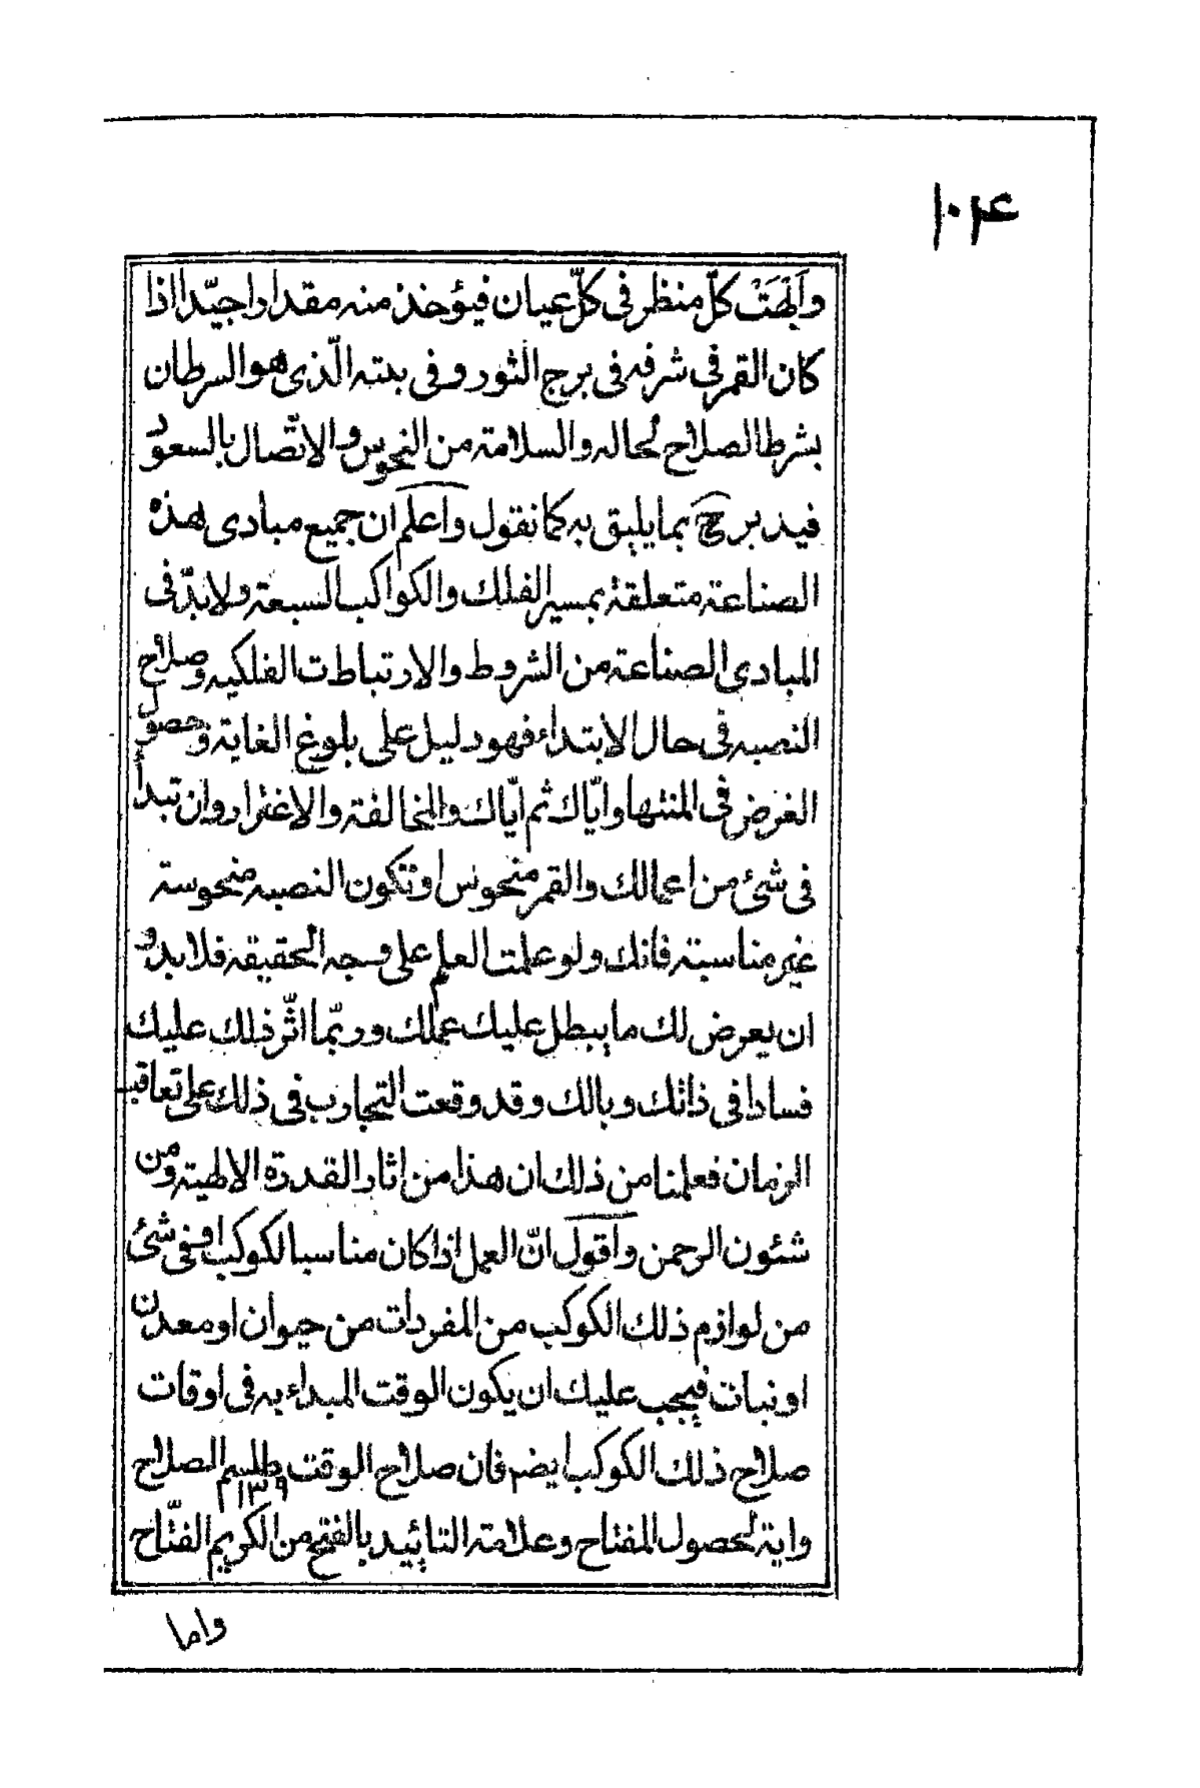 ١٠٤
وَاَبْهَتَتْ كلّ منظر فى كلّ عيان فيؤخذ منه مقدارا جيّدا اذا
كان القمر فى شرفه فى برج الثور و فى بيته الّذى هو السرطان
بشرط الصلاح لحاله و السلامة من النحوس و الاتّصال بالسعود
فيدبر ح‍ بما يليق به كما نقول و اعلم ان جميع مبادى هذه
الصناعة متعلقة بمسير الفلك و الكواكب السبعة و لا بدّ فى
المبادى الصناعة من الشروط و الارتباطات الفلكيه و صلاح
النصبه فى حال الابتداء فهو دليل على بلوغ الغاية و حصول
الغرض فى المنتها و ايّاك ثم ايّاك و المخالفة و الاغترار و ان تبدأ
فى شئ من اعمالك و القمر منحوس او تكون النصبه منحوسة
غير مناسبة فانك و لو علمت العلم على وجه الحقيقه فلا بد و
ان يعرض لك ما يبطل عليك عملك و ربّما اثّر ذلك عليك
فسادا فى ذاتك و بالك و قد وقعت التجارب فى ذلك على تعاقب
الزمان فعلمنا من ذلك ان هذا من اثار القدرة الالهية و من
شئون الرحمن و اقول انّ العمل اذا كان مناسبا لكوكب او فى شئ
من لوازم ذلك الكوكب من المفردات من حيوان او معدن
او نبات فيجب عليك ان يكون الوقت المبداء به فى اوقات
صلاح ذلك الكوكب ايضم فان صلاح الوقت طلسم الصلاح
١٣٩
و اية لحصول المفتاح و علامة التائيد بالفتح من الكريم الفتّاح
و اما